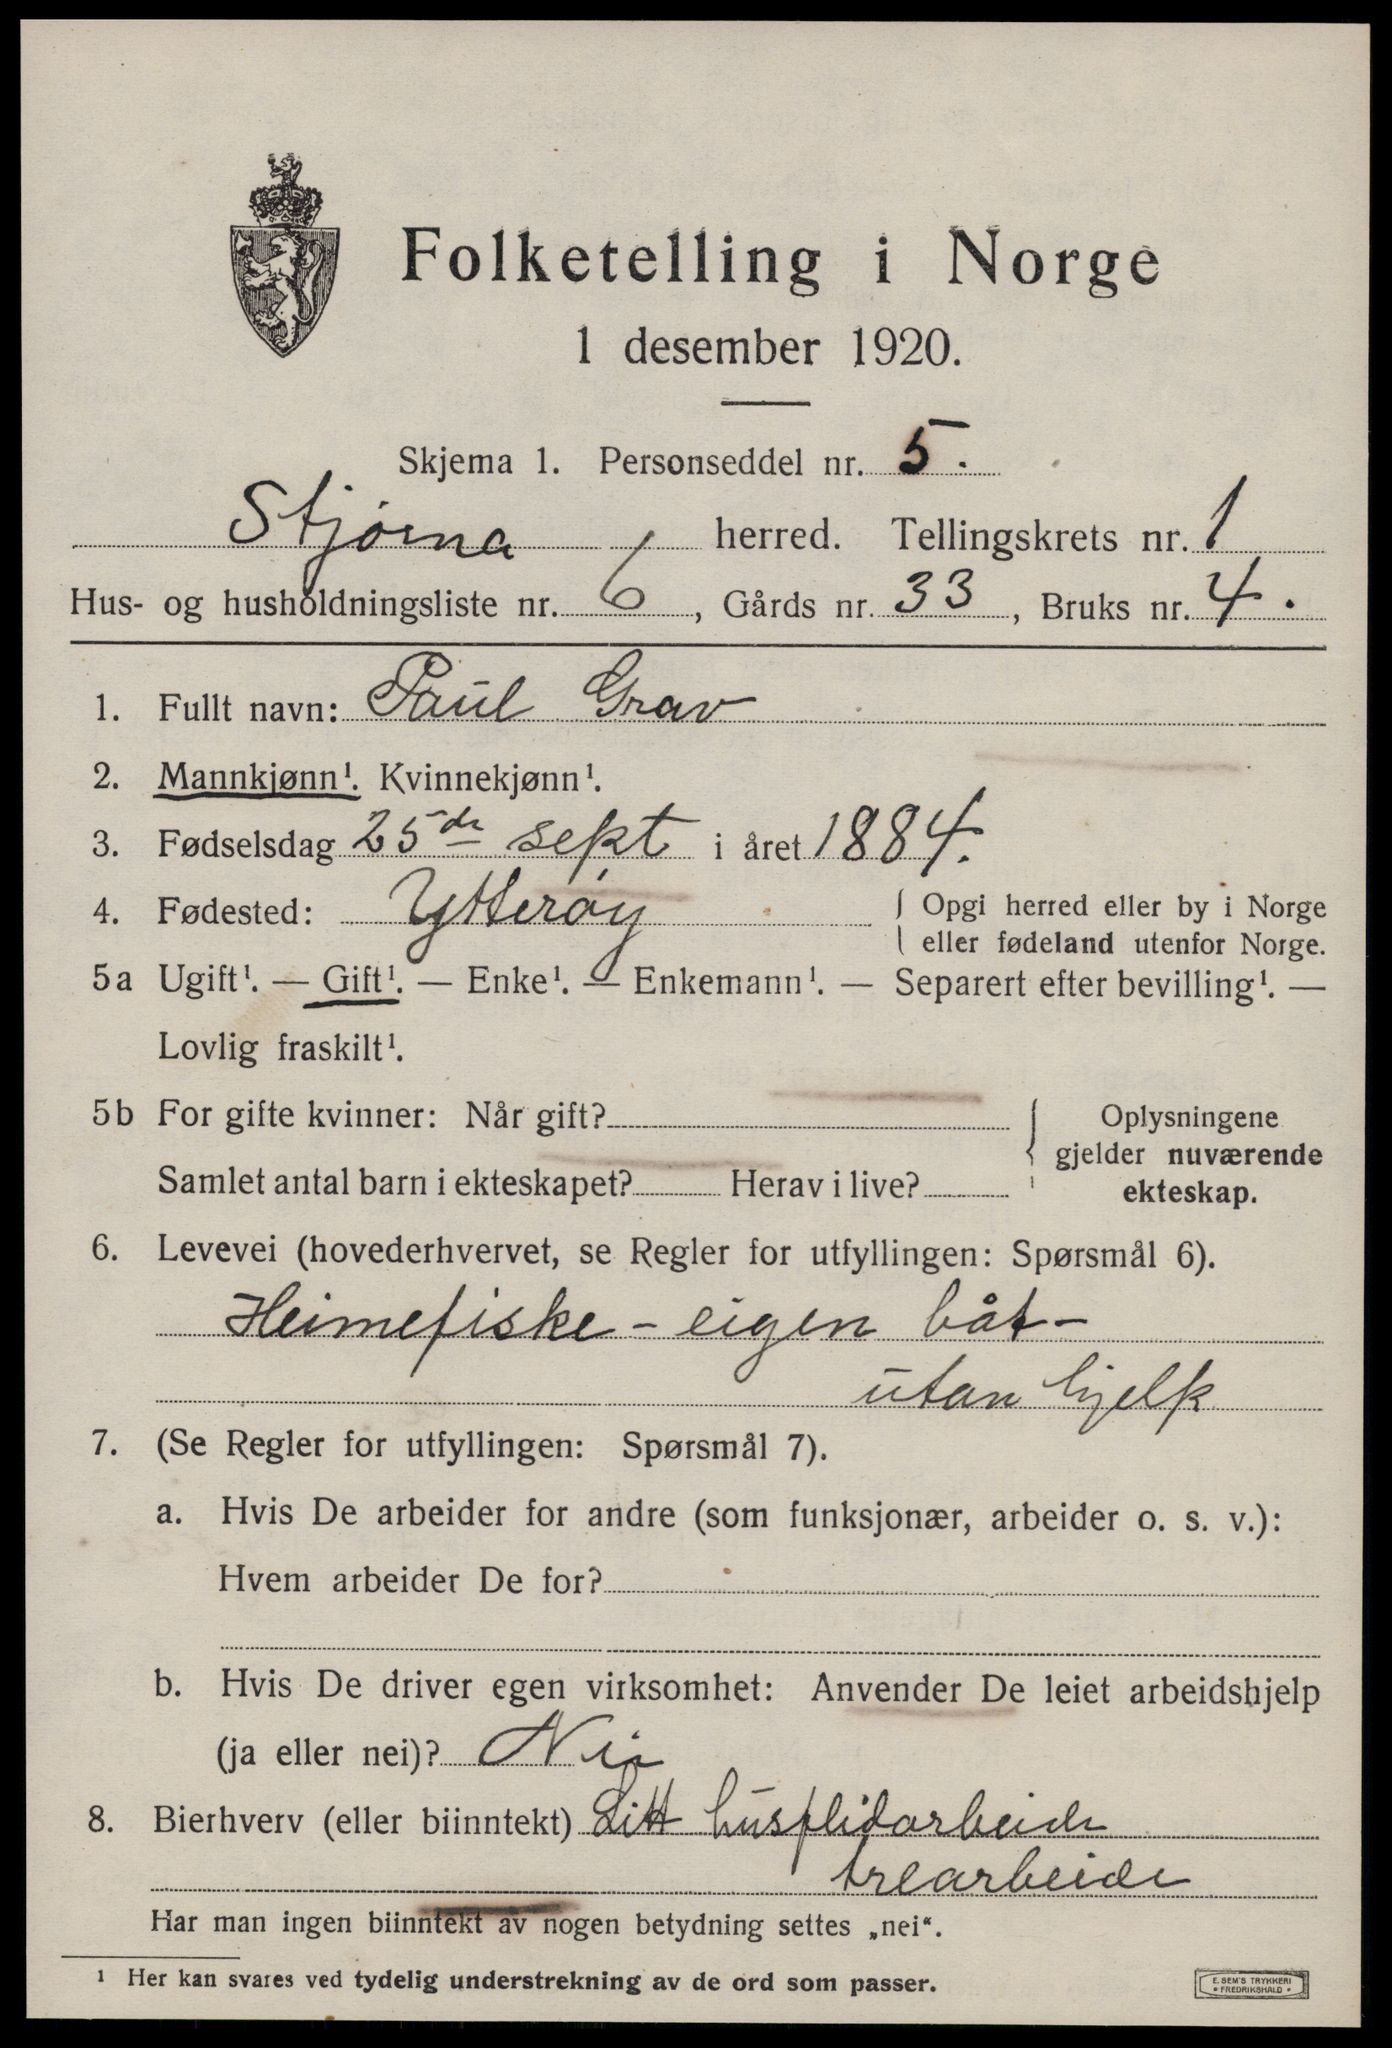 Folketelling i Norge
1 desember 1920.
Skjema 1. Personseddel nr. 5.
Stjørna herred. Tellingskrets nr. 1
Hus- og husholdningsliste nr. 6, Gårds nr. 33, Bruks nr. 4.
1. Fullt navn: Paul Grav
2. Mannkjønn¹. Kvinnekjønn¹.
3. Fødselsdag 25de sept i året 1884.
4. Fødested: Ytterøy { Opgi herred eller by i Norge
eller fødeland utenfor Norge.
5a Ugift¹. — Gift¹. — Enke¹. — Enkemann¹. — Separert efter bevilling¹. —
Lovlig fraskilt¹.
5b For gifte kvinner: Når gift? { Oplysningene
gjelder nuværende
Samlet antal barn i ekteskapet? Herav i live? ekteskap.
6. Levevei (hovederhvervet, se Regler for utfyllingen: Spørsmål 6).
Heimefiske - eigen båt -
utan hjelp
7. (Se Regler for utfyllingen: Spørsmål 7).
a. Hvis De arbeider for andre (som funksjonær, arbeider o. s. v.):
Hvem arbeider De for?
b. Hvis De driver egen virksomhet: Anvender De leiet arbeidshjelp
(ja eller nei)? Nei
8. Bierhverv (eller biinntekt) Litt husflidarbeide
trearbeide
Har man ingen biinntekt av nogen betydning settes „nei“.
¹ Her kan svares ved tydelig understrekning av de ord som passer.
E. SEM'S TRYKKERI
FREDRIKSHALD